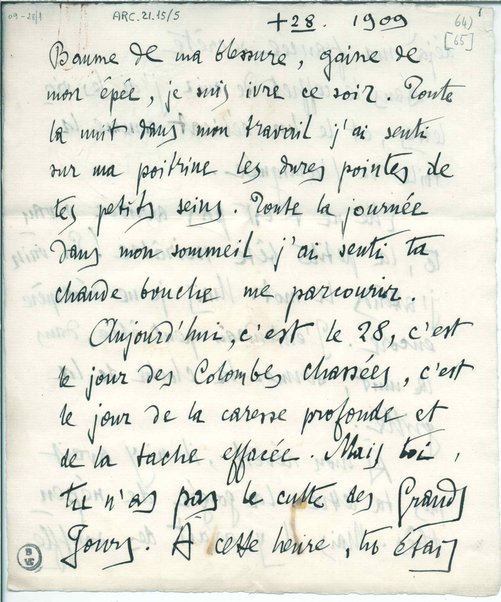 09-28/1
ARC.21.15/5
+28. 1909
64)
[65]
Baume de ma blessure, gaine de
mon épée, je suis ivre ce soir. Toute
la nuit dans mon travail j'ai senti
sur ma poitrine les dures pointes de
tes petits seins. Toute la journée
dans mon sommeil j'ai senti ta
chaude bouche me parcourir.
Aujourd'hui, c'est le 28, c'est
le jour des Colombes chassées, c'est
le jour de la caresse profonde et
de la tache effacée. Mais toi,
tu n'as pas le culte des Grands
Jours. A cette heure, tu étais